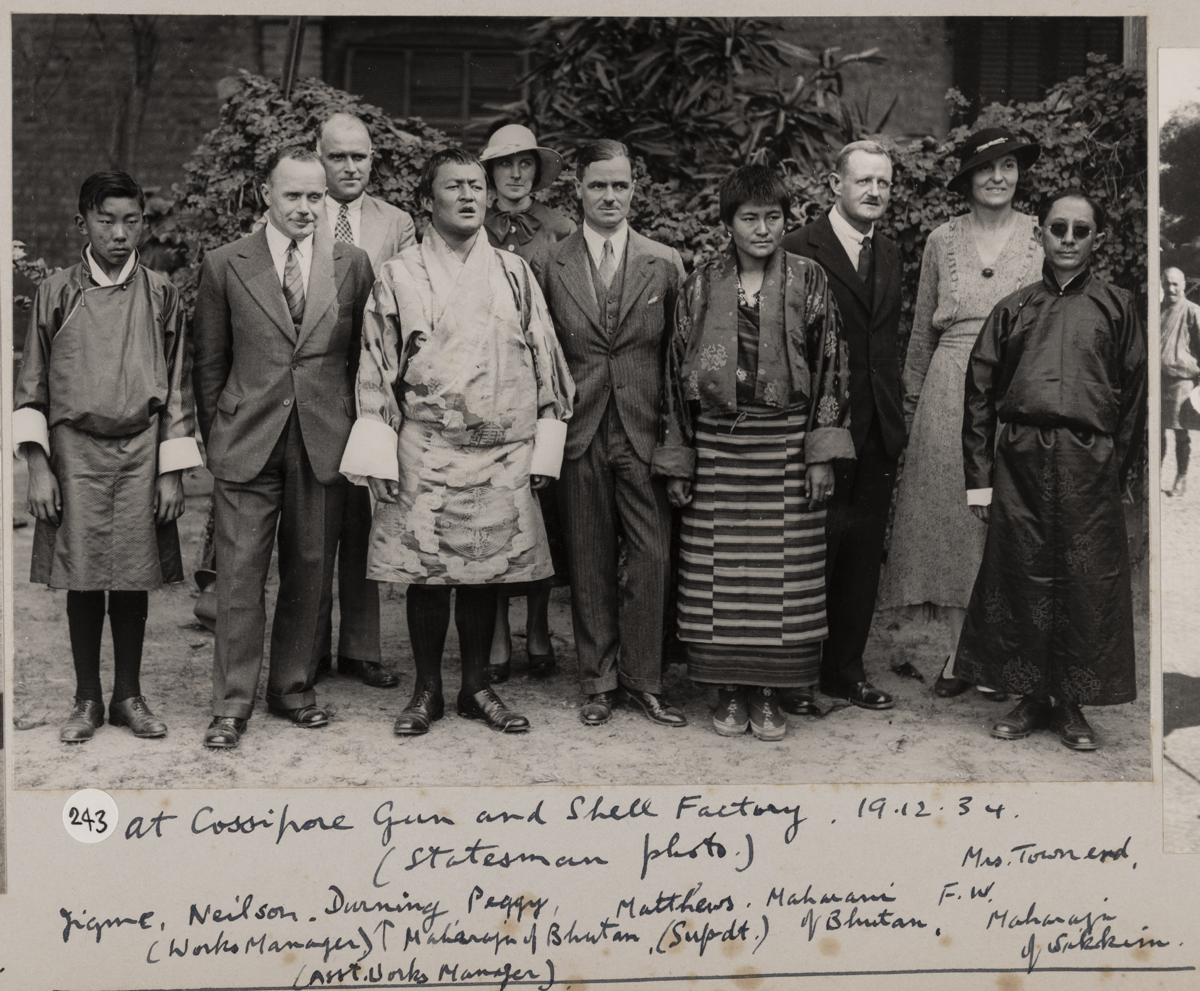 243 at Cossipore Gun and Shell Factory. 19.12.34.
(Statesman photo.)
Mrs. Townend,
Jigme, Neilson. Durning Peggy, Matthews. Maharani F.W.
(Works Manager) ↑ Maharaja of Bhutan, (Supdt.) of Bhutan, Maharaja
of Sikkim.
(Asst. Works Manager)